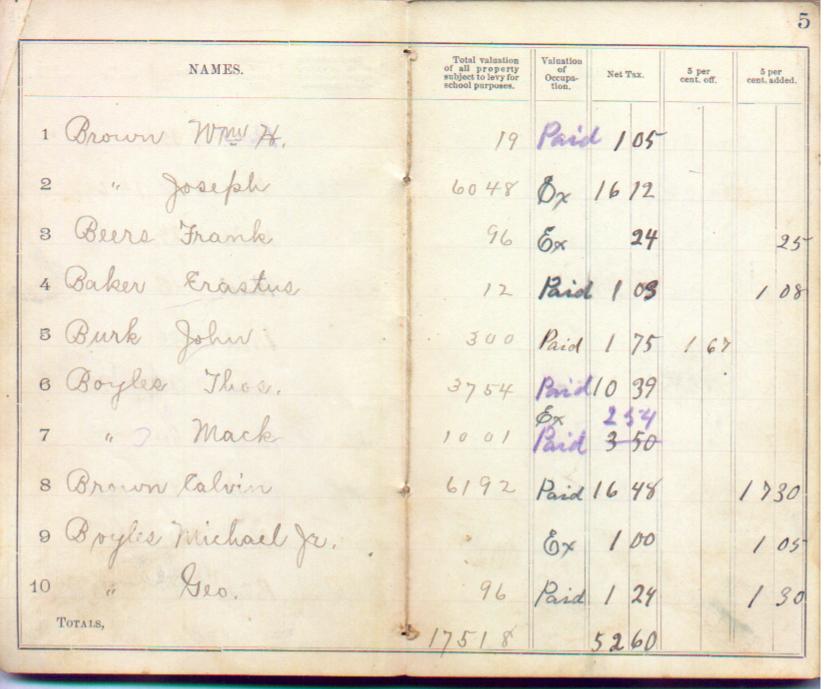 5
NAMES. Total valuation of all property subject to levy for school purposes. Valuation of Occupa-tion. Net Tax. 5 per cent. off. 5 per cent. added.
1 Brown Wm H. 19 Paid 1 05
2 " Joseph 6048 Ex 16 12
3 Beers Frank 96 Ex 24 25
4 Baker Erastus 12 Paid 1 03 1 08
5 Burk John 300 Paid 1 75 1 67
6 Boyles Thos. 3754 Paid 10 39
Ex 2 54
7 " Mack 1001 Paid 3 50
8 Brown Calvin 6192 Paid 16 48 17 30
9 Boyles Michael Jr. Ex 1 00 1 05
10 " Geo. 96 Paid 1 24 1 30
TOTALS, 17518 52 60